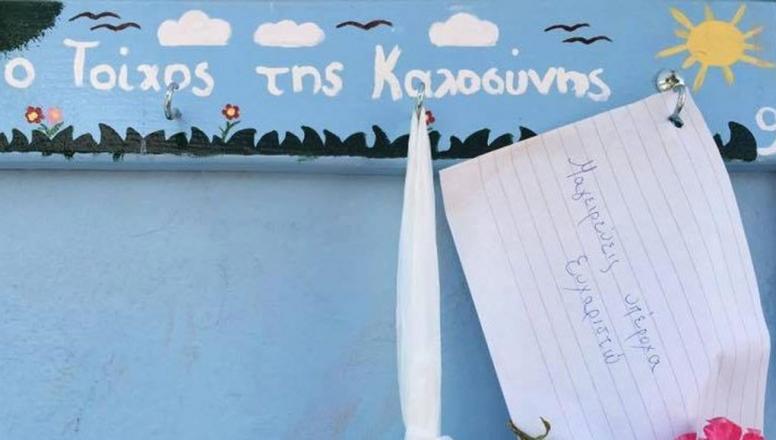 ο Τοίχος της Καλοσύνης
Μαγειρεύεις υπέροχα
Ευχαριστώ